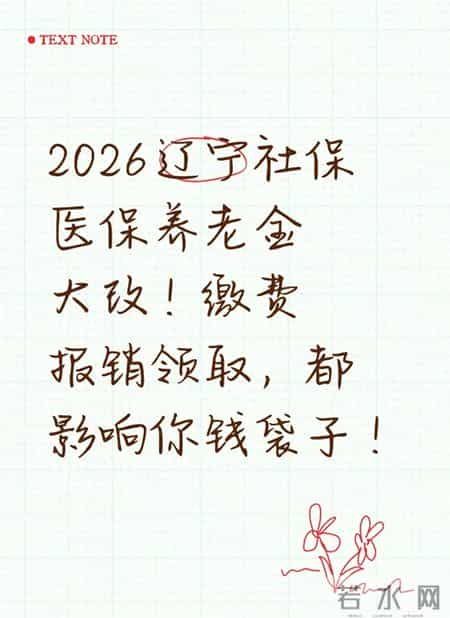 TEXT NOTE
2026辽宁社保
医保养老金
大改！缴费
报销领取，都
影响你钱袋子！
若水网